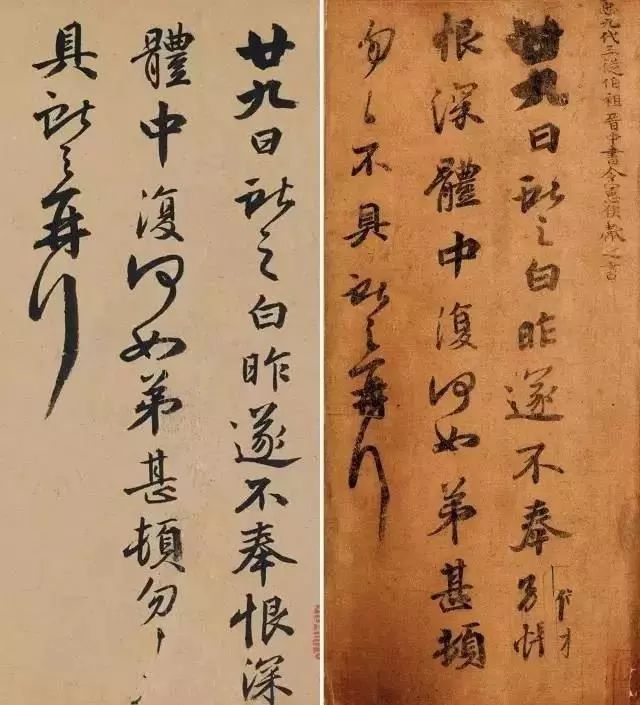 九代三從伯祖晉中書令憲侯獻之書
廿九日獻之白昨遂不奉別悵
恨深體中復何如弟甚頓
勿々不具獻之再拜
廿九日獻之白昨遂不奉恨深
體中復何如弟甚頓勿々
具獻之再拜